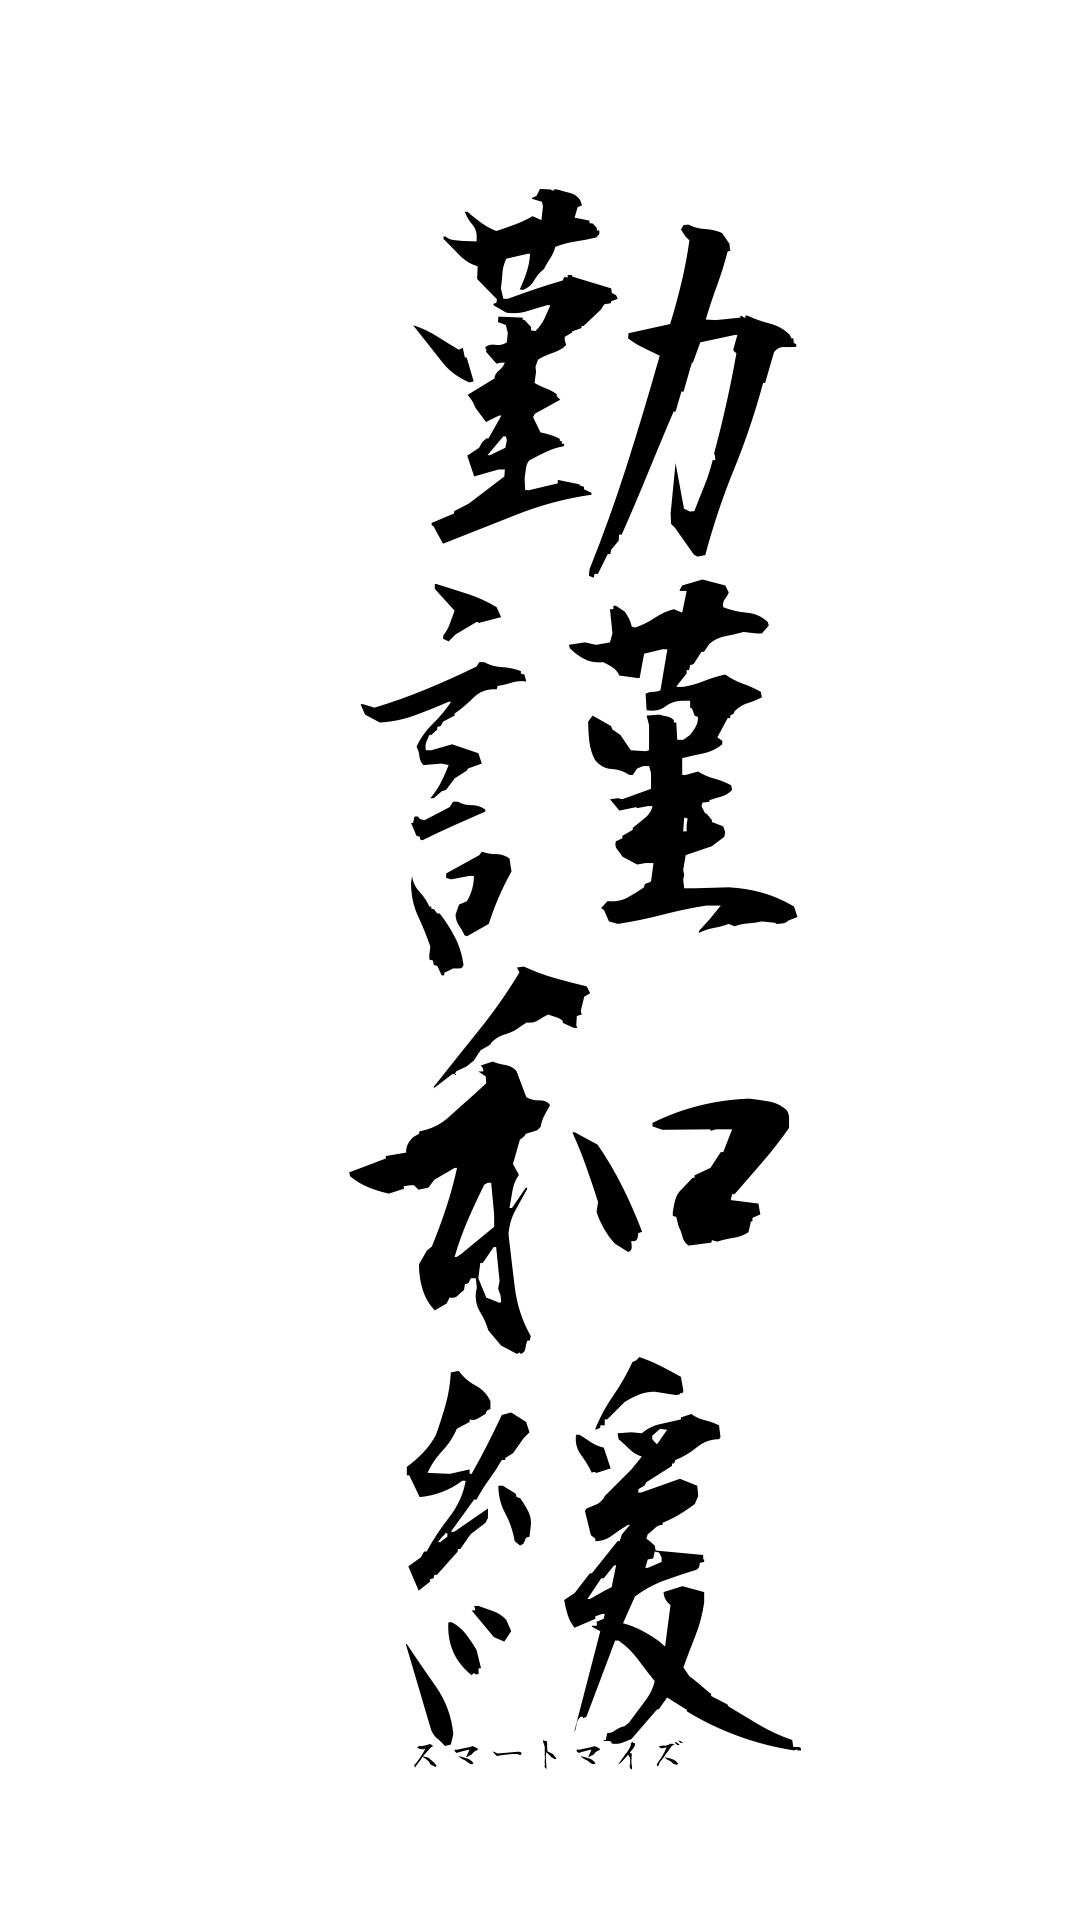 勤謹和緩
スマートマイズ